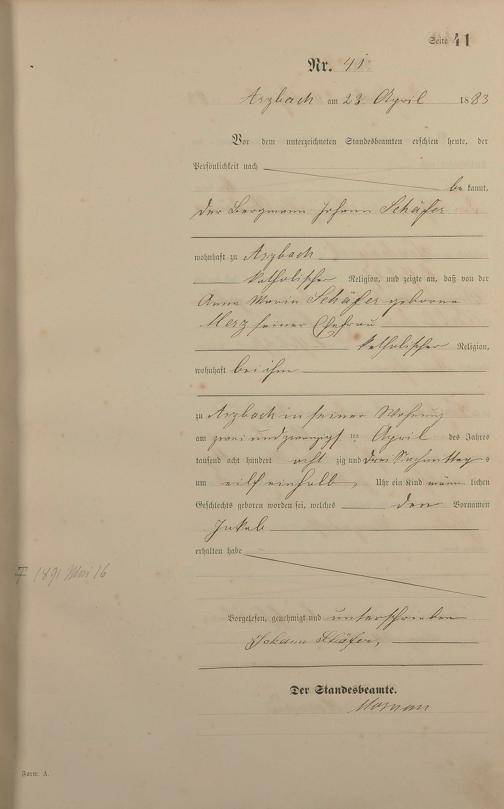 Seite 41
Nr. 41.
Arzbach am 23 April 1883
Vor dem unterzeichneten Standesbeamten erschien heute, der
Persönlichkeit nach
be kannt,
der Bergmann Johann Schäfer
wohnhaft zu Arzbach
katholischer Religion, und zeigte an, daß von der
Anna Maria Schäfer geborene
Merz seiner Ehefrau
katholischer Religion,
wohnhaft bei ihm
zu Arzbach in seiner Wohnung
am zwei und zwanzigst ten April des Jahres
tausend acht hundert acht zig und drei Nachmittags
um eilf einhalb Uhr ein Kind männ lichen
Geschlechts geboren worden sei, welches den Vornamen
Jakob
erhalten habe
† 1891 Mai 16
Vorgelesen, genehmigt und unterschrieben
Johann Schäfer,
Der Standesbeamte.
Form. A.